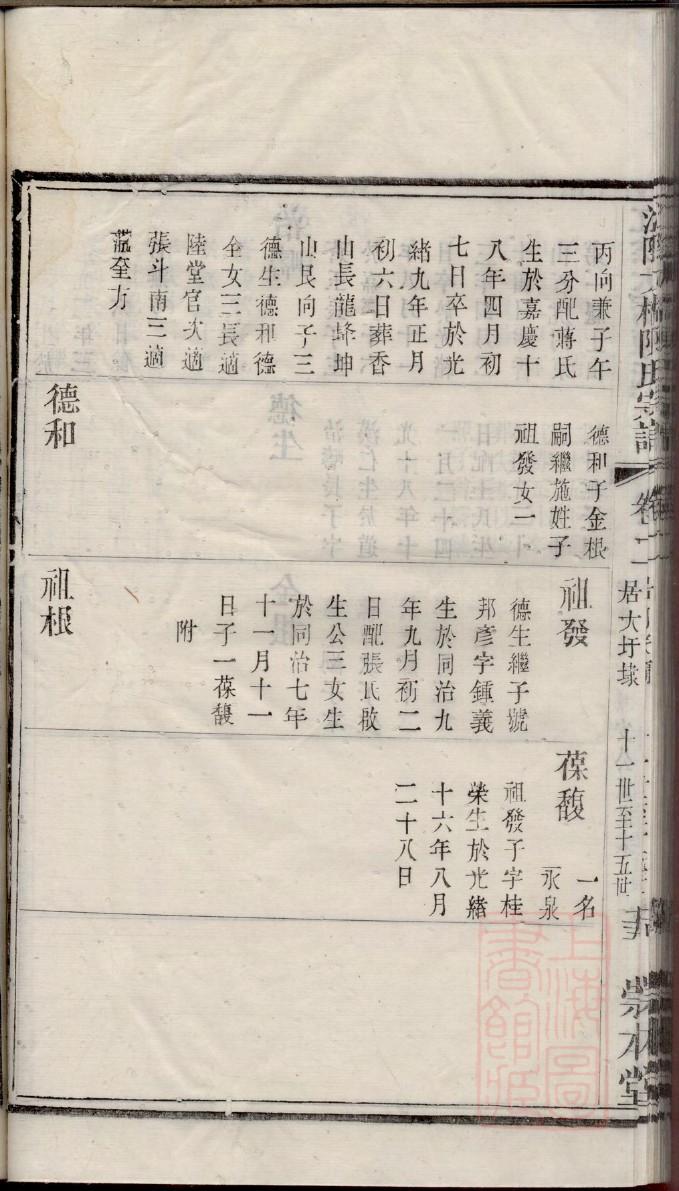 丙向兼子午
三分配蔣氏
生於嘉慶十
八年四月初
七日卒於光
緒九年正月
初六日葬香
山長龍蜂坤
山艮向子三
德生德和德
全女三長適
陸堂官次適
張斗南三適
奎方
德和子金根
嗣繼施姓子
祖發女一
德和
祖發
德生繼子號
邦彦字鍾義
生於同治九
年九月初二
日配張氏啟
生公三女生
於同治七年
十一月十一
日子一葆馥
附
祖根
葆馥
一名
永泉
祖發子字桂
榮生於光緒
十六年八月
二十八日
陳氏宗譜
卷二
居大圩埭
十一世至十五世
崇本堂
上海圖書館藏